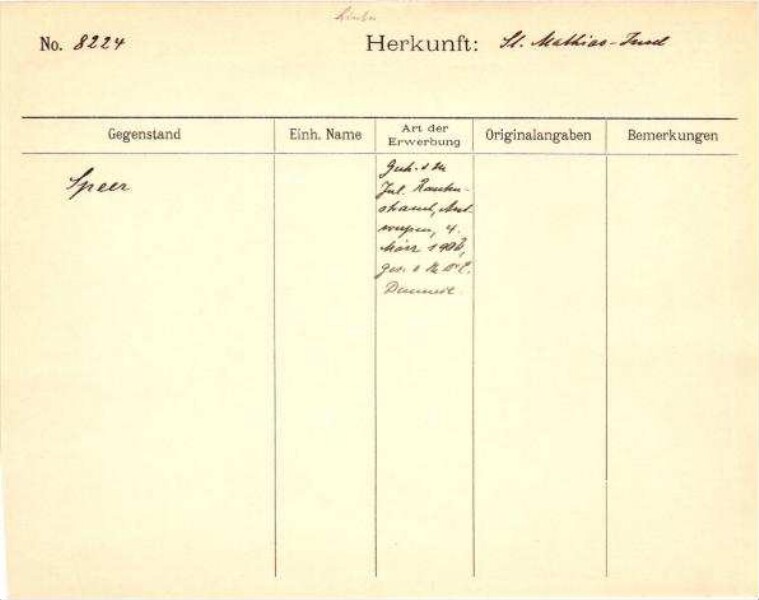 No. 8224 Herkunft: St. Mathias-Insel
Gegenstand Einh. Name Art der Erwerbung Originalangaben Bemerkungen
Speer
Jul. Rauten-
strauch, Ant-
werpen, 4.
März
ges.